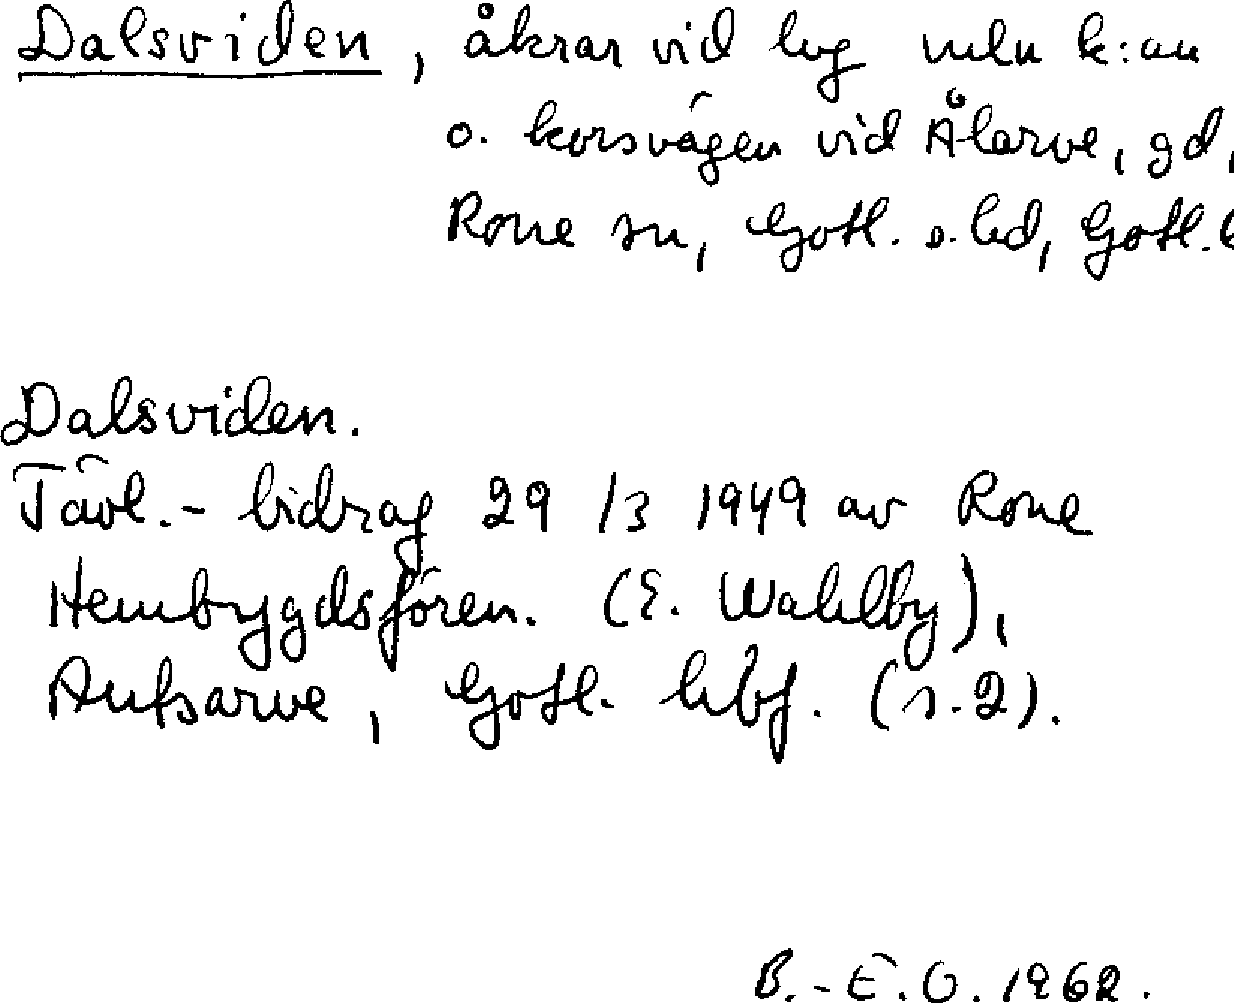 Dalsviden, åkrar vid lvg meln k:an
o. korsvägen vid Ålarve, gd,
Rone sn, Gotl. s. hd, Gotl. l
Dalsviden.
Tävl.- bidrag 29/3 1949 av Rone
Hembygdsfören. (E. Wahlby),
Autsarve, Gotl. hbf. (s. 2).
B.-E. O. 1962.